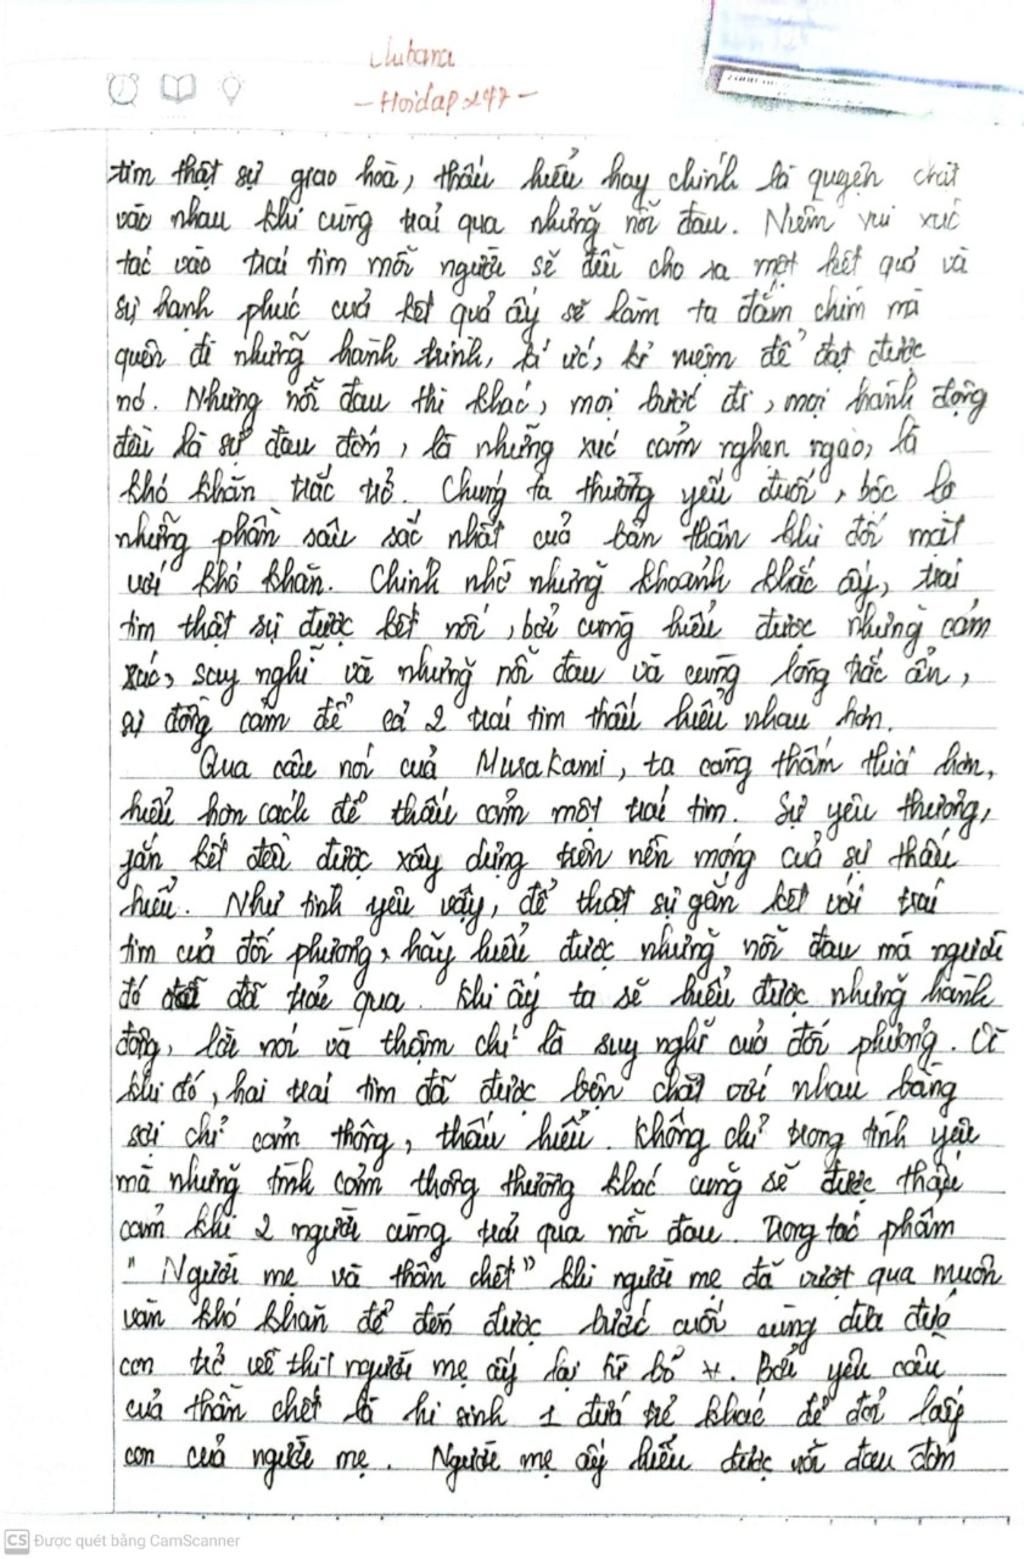 - Hoidap247 -
tim thật sự giao hoà, thấu hiểu hay chính là quyện chặt
vào nhau khi cùng trải qua những nỗi đau. Niềm vui xúc
tác vào trái tim mỗi người sẽ đều cho ra một kết quả và
sự hạnh phúc cuả kết quả ấy sẽ làm ta đắm chìm mà
quên đi những hành trình, kí ức, kỉ niệm để đạt được
nó. Nhưng nỗi đau thì khác, mọi bước đi, mọi hành động
đều là sự đau đớn, là những xúc cảm nghẹn ngào, là
khó khăn trắc trở. Chúng ta thường yếu đuối, bộc lộ
những phần sâu sắc nhất cuả bản thân khi đối mặt
với khó khăn. Chính nhờ những khoảnh khắc ấy, trái
tim thật sự được kết nối, bởi cùng hiểu được những cảm
xúc, suy nghĩ và những nỗi đau và cùng lòng trắc ẩn,
sự đồng cảm để cả 2 trái tim thấu hiểu nhau hơn.
Qua câu nói cuả Murakami, ta càng thấm thiá hơn,
hiểu hơn cách để thấu cảm một trái tim. Sự yêu thương,
gắn kết đều được xây dựng trên nền móng cuả sự thấu
hiểu. Như tình yêu vậy, để thật sự gắn kết với trái
tim cuả đối phương, hãy hiểu được những nỗi đau mà người
đó đã trải qua. Khi ấy ta sẽ hiểu được những hành
động, lời nói và thậm chí là suy nghĩ cuả đối phương. Vì
khi đó, hai trái tim đã được bện chặt với nhau bằng
sợi chỉ cảm thông, thấu hiểu. Không chỉ trong tình yêu
mà những tình cảm thông thường khác cũng sẽ được thấu
cảm khi 2 người cùng trải qua nỗi đau. Trong tác phẩm
"Người mẹ và thần chết" khi người mẹ đã vượt qua muôn
vàn khó khăn để đến được bước cuối cùng đưa đứa
con trở về thì người mẹ ấy lại từ bỏ. Bởi yêu cầu
cuả thần chết là hi sinh 1 đứa trẻ khác để đổi lấy
con cuả người mẹ. Người mẹ ấy hiểu được nỗi đau đớn
CS Được quét bằng CamScanner